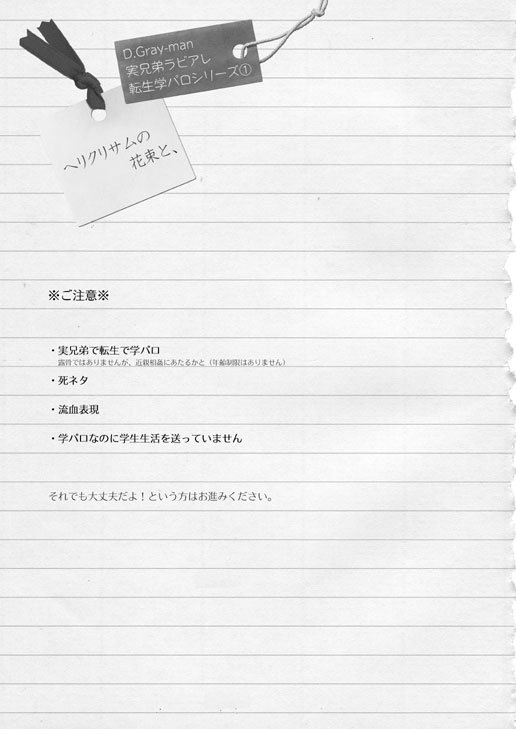 D.Gray-man
実兄弟ラビアレ
転生学パロシリーズ①
ヘリクリサムの
花束と、
※ご注意※
・実兄弟で転生で学パロ
露骨ではありませんが、近親相姦にあたるかと（年齢制限はありません）
・死ネタ
・流血表現
・学パロなのに学生生活を送っていません
それでも大丈夫だよ！という方はお進みください。